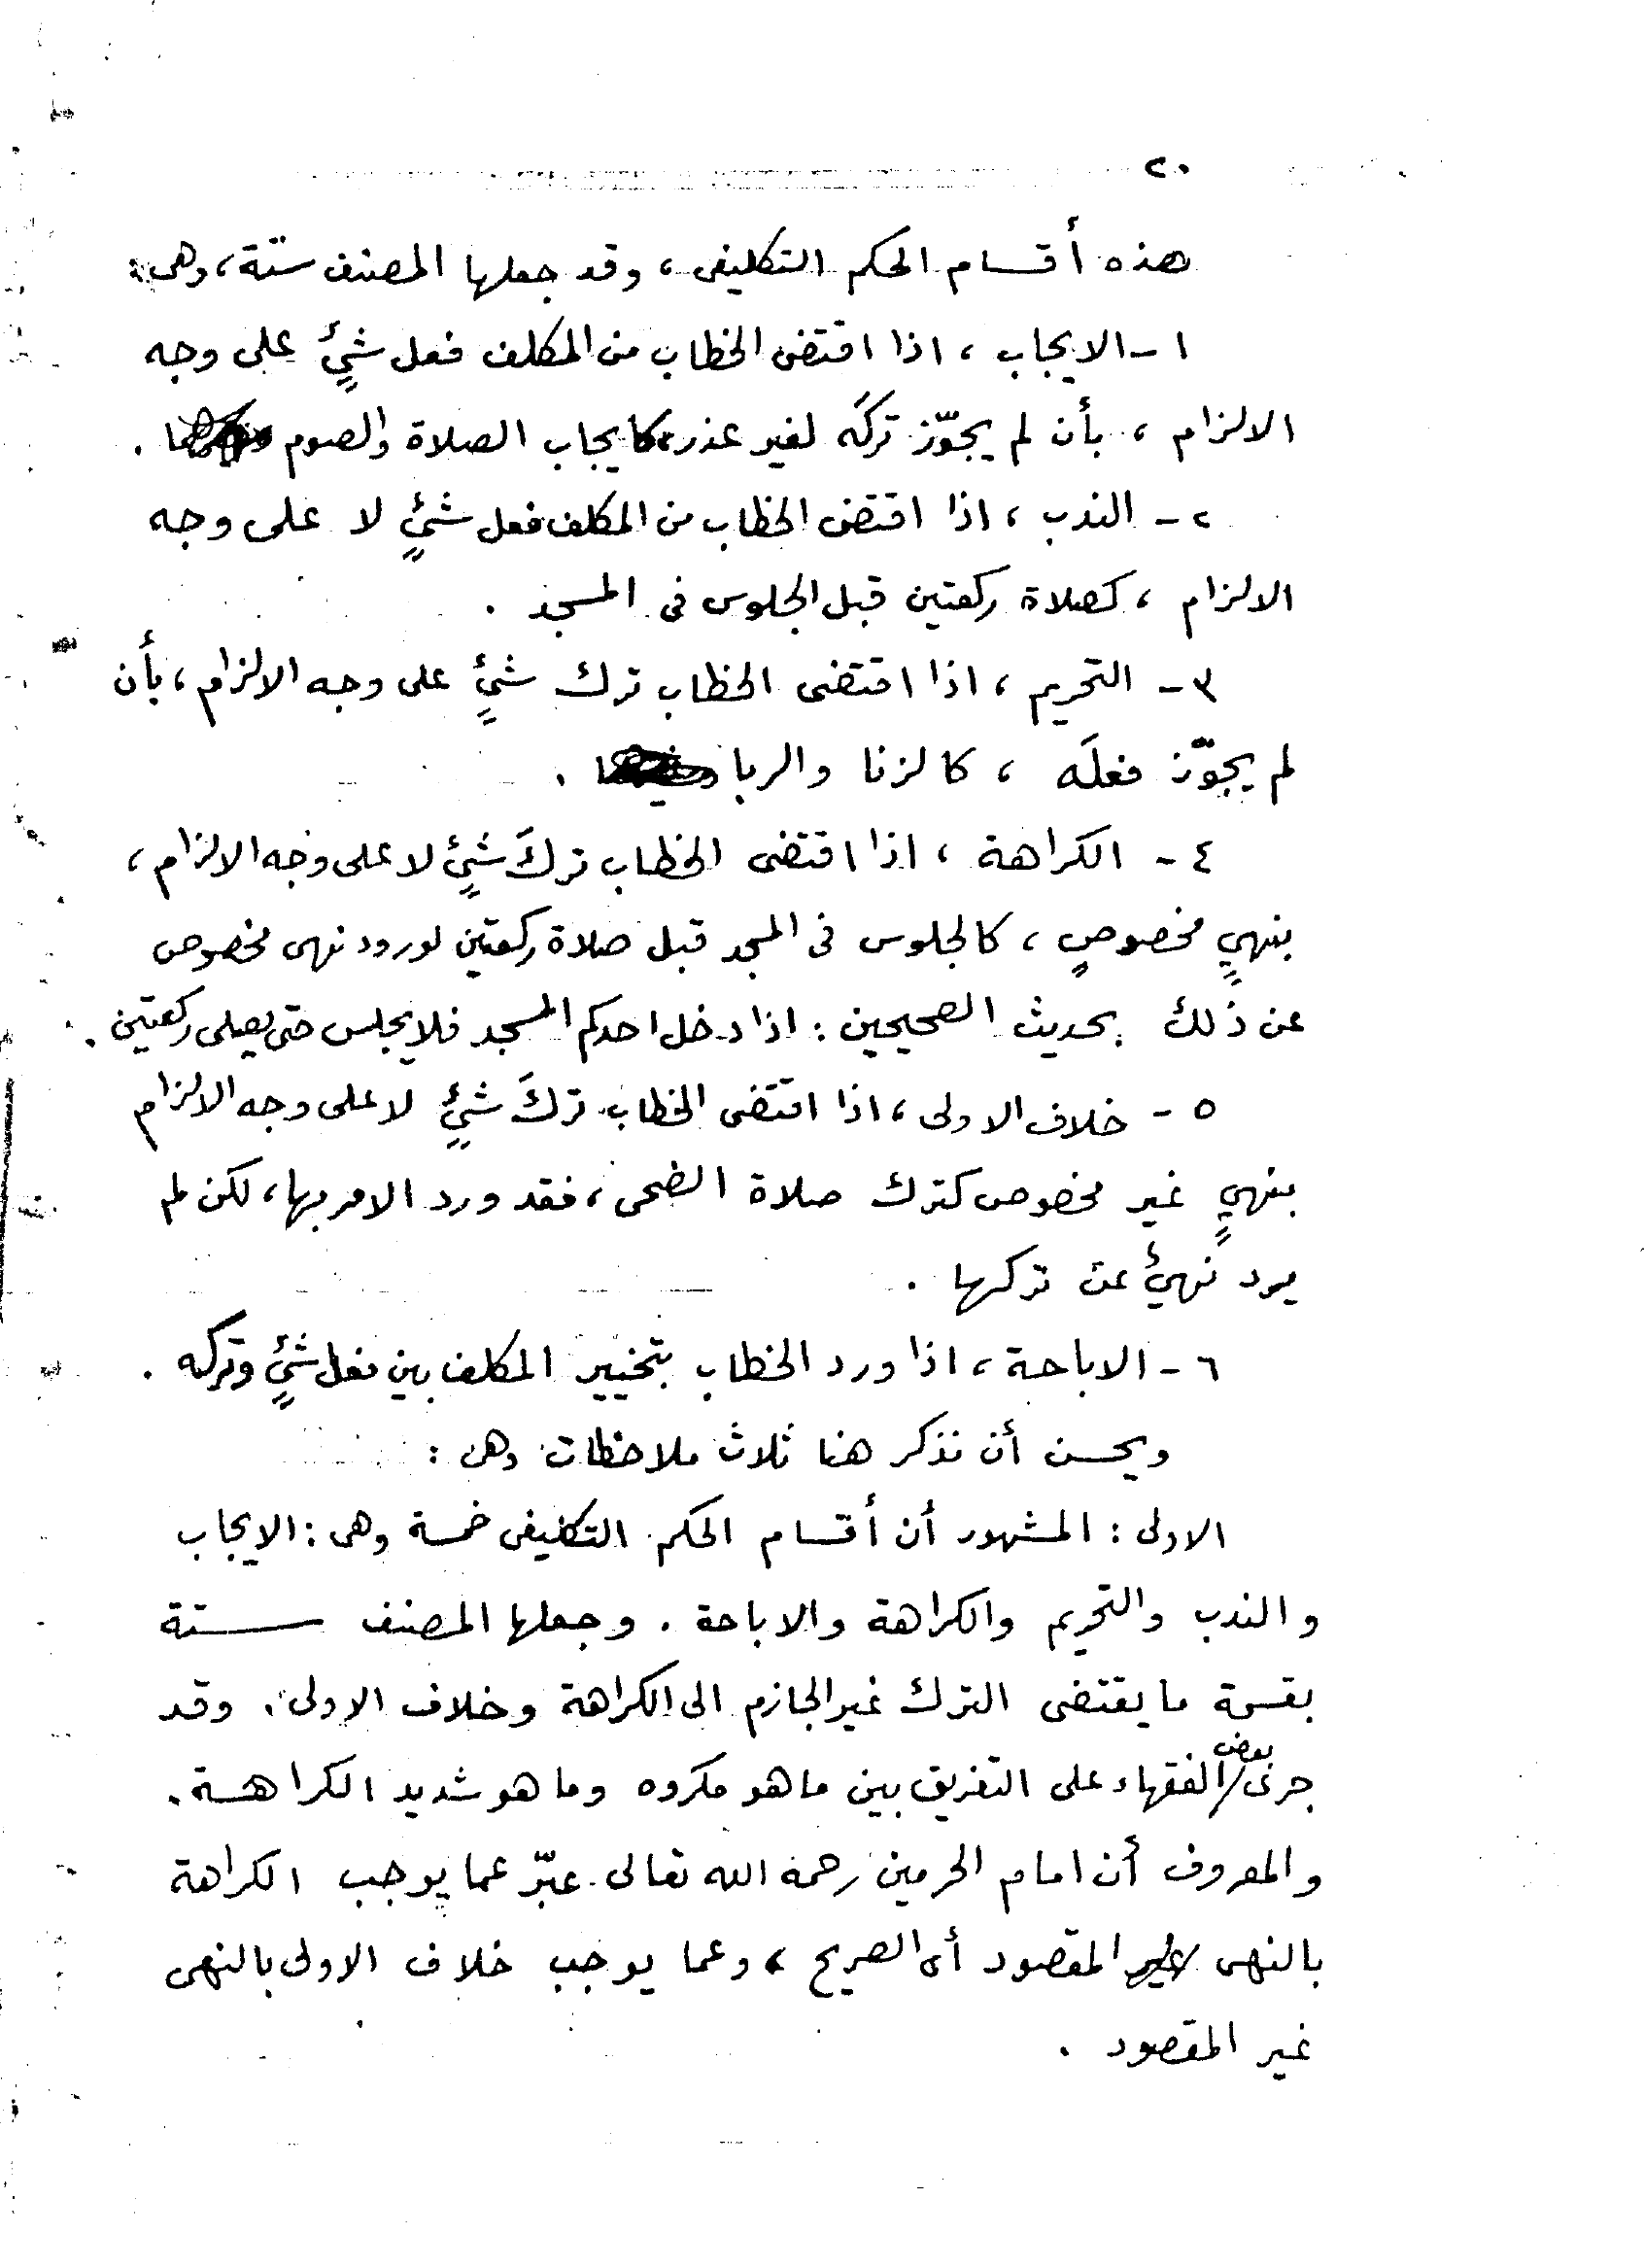 ٢٠
هذه أقسام الحكم التكليفى ، وقد جعلها المصنف ستّة ، وهى :
١ - الايجاب ، اذا اقتضى الخطاب من المكلف فعل شيءٍ على وجه
الالزام ، بأن لم يجوّز تركَه لغير عذر ، كايجاب الصلاة والصوم .
٢ - الندب ، اذا اقتضى الخطاب من المكلف فعل شيءٍ لا على وجه
الالزام ، كصلاة ركعتين قبل الجلوس فى المسجد .
٣ - التحريم ، اذا اقتضى الخطاب ترك شيءٍ على وجه الالزام ، بأن
لم يجوّز فعلَه ، كالزنا والربا .
٤ - الكراهة ، اذا اقتضى الخطاب تركَ شيءٍ لا على وجه الالزام ،
بنهيٍ مخصوصٍ ، كالجلوس فى المسجد قبل صلاة ركعتين لورود نهى مخصوص
عن ذلك بحديث الصحيحين : اذا دخل احدكم المسجد فلا يجلس حتى يصلى ركعتين .
٥ - خلاف الاولى ، اذا اقتضى الخطاب تركَ شيءٍ لا على وجه الالزام
بنهيٍ غير مخصوص كترك صلاة الضحى ، فقد ورد الامر بها ، لكن لم
يرد نهيٌ عن تركها .
٦ - الاباحة ، اذا ورد الخطاب بتخيير المكلف بين فعل شيءٍ وتركه .
ويحسن أن نذكر هنا ثلاث ملاحظات وهى :
الاولى : المشهور أن أقسام الحكم التكليفى خمسة وهى : الايجاب
والندب والتحريم والكراهة والاباحة . وجعلها المصنف ستة
بقسمة ما يقتضى الترك غير الجازم الى الكراهة وخلاف الاولى . وقد
جرى بعض الفقهاء على التفريق بين ما هو مكروه وما هو شديد الكراهة .
والمعروف أن امام الحرمين رحمه الله تعالى عبّر عما يوجب الكراهة
بالنهى المقصود أى الصريح ، وعما يوجب خلاف الاولى بالنهى
غير المقصود .